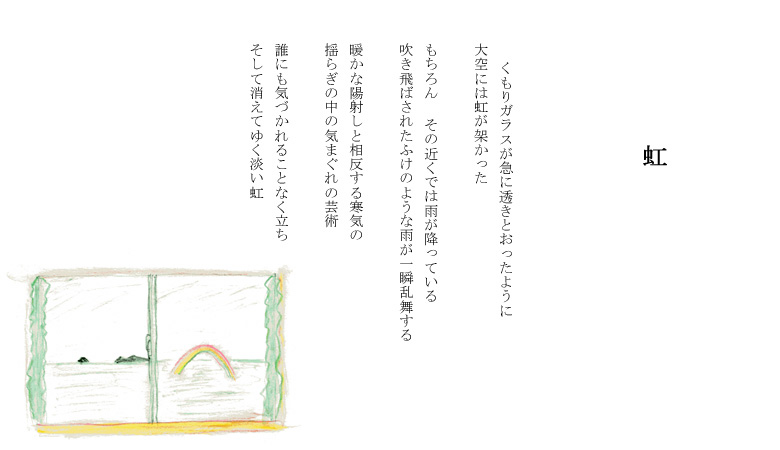 虹
くもりガラスが急に透きとおったように
大空には虹が架かった
もちろん　その近くでは雨が降っている
吹き飛ばされたふけのような雨が一瞬乱舞する
暖かな陽射しと相反する寒気の
揺らぎの中の気まぐれの芸術
誰にも気づかれることなく立ち
そして消えてゆく淡い虹